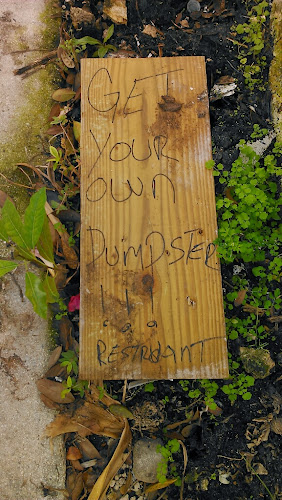 GET
YOUR
OWN
DUMPSTER
!!!
RESTRUANT